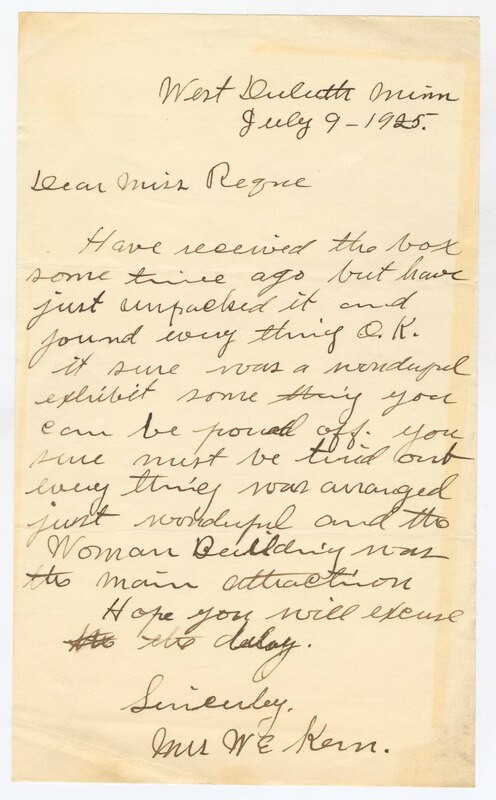 West Duluth Minn
July 9-1925.
Dear Miss Regne
Have received the box
some time ago but have
just unpacked it and
found every thing O.K.
it sure was a wonderful
exhibit some thing you
can be proud off. you
sure must be tired out
every thing was arranged
just wonderful and the
Woman Building was
the main attraction
Hope you will excuse
the the delay.
Sincerley.
Mrs W E Kern.